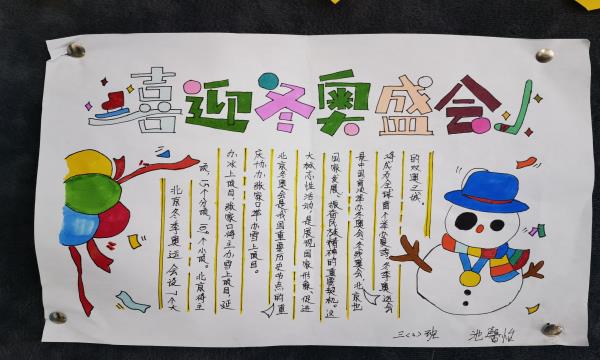 喜迎冬奥盛会
北京冬季奥运会设7个大
项,15个分项,109个小项。北京将主
办冰上项目,张家口将主办雪上项目,延
庆协办张家口举办雪上项目。
北京冬奥会是我国重要历史节点的重
大标志性活动,是展现国家形象、促进
国家发展、振奋民族精神的重要契机,这
是中国首次举办冬奥会、冬残奥会,北京也
将成为全球首个举办夏季、冬季奥运会
的双奥之城。
三(2)班 池馨怡